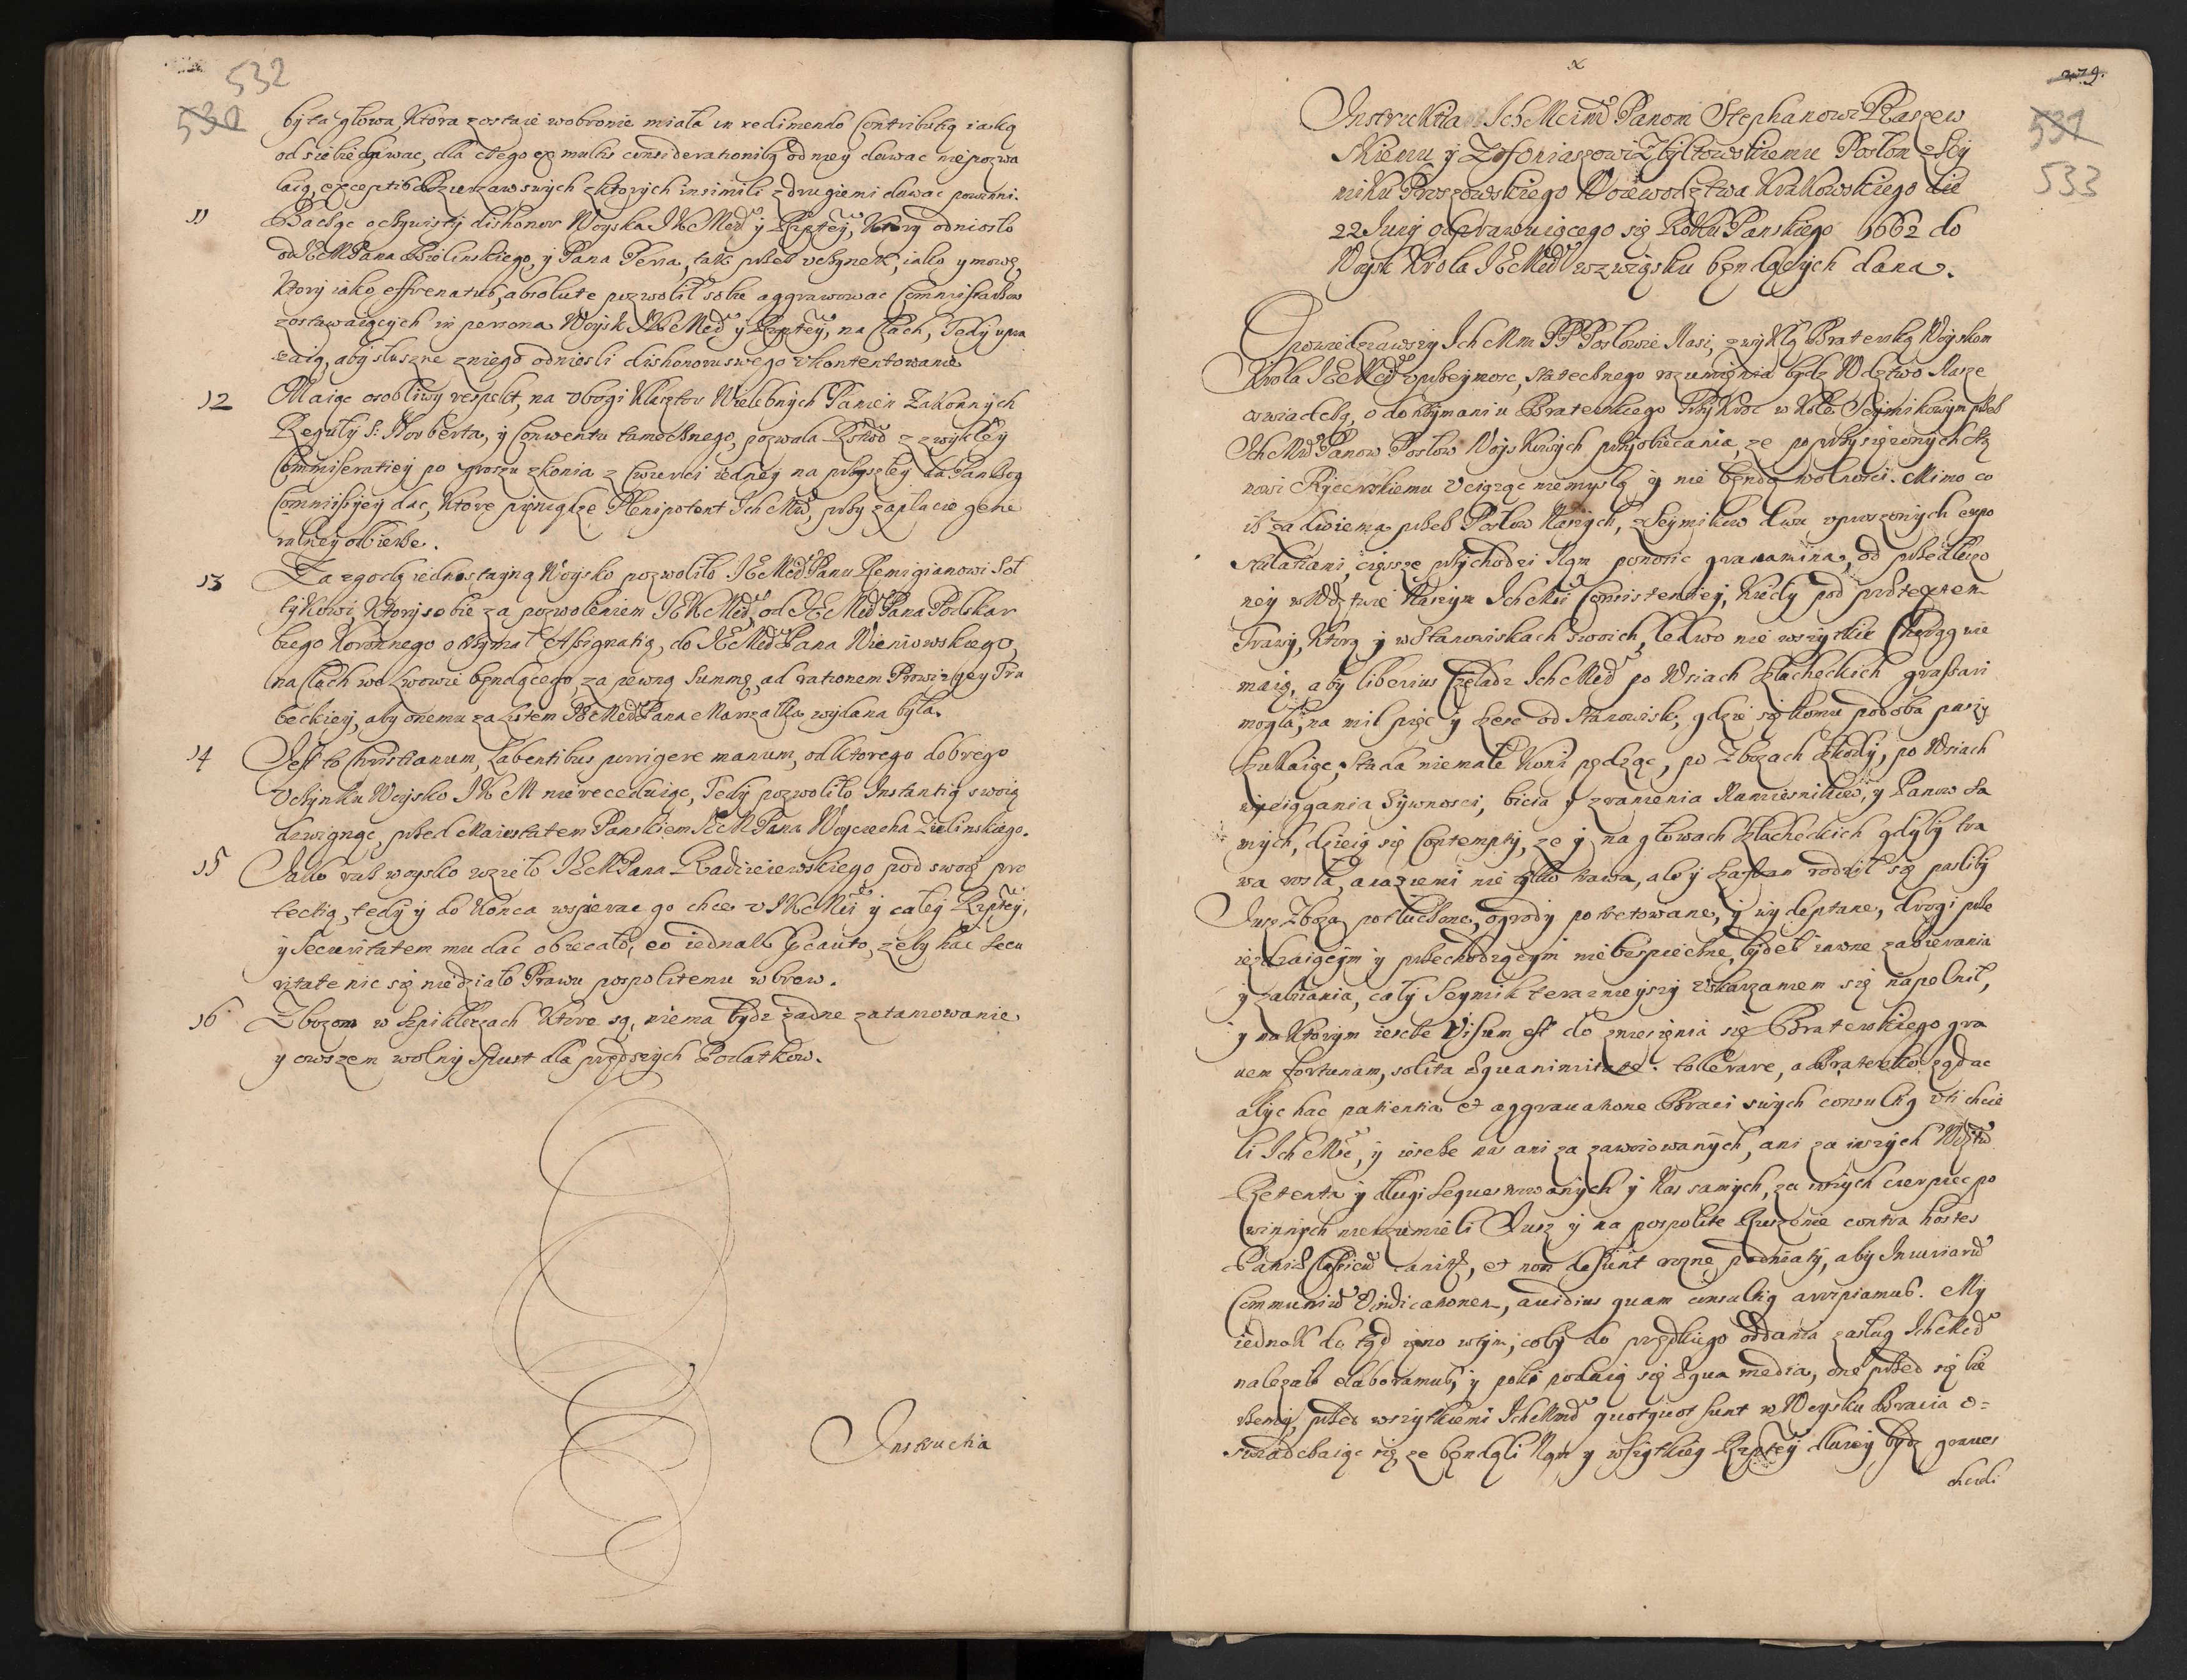 532
530
była głowa, Ktora zostaie wobronie miała in redimendo Contributią iaską
od siebie dawac, dla czego ex multis considerationibq od niey dawac niepozwa
laią, exceptis Dzierzaw swych z ktorych insimili z drugiemi dawac powinni.
11 Bacząc oczywisty dishonor Woyska JKMci y Rzptey, Ktory odniosło
od JEMPana Bielinskiego, y Pana Perra, tak przez uczynek, iako y mowę,
Ktory iako effrenatus, absolute pozwolił sobie aggravowac Commissarzow
zostawaiących in persona Woysk JKMci y Rzptey, na Cłach, Tedy upra
szaią, aby słuszne zniego odniesli dishonoru swego ukontentowanie
12 Maiąc osobliwy respekt, na Ubogi Klasztor Wielebnych Panien Zakonnych
Reguły S: Norberta, y Conwentu tamecznego, pozwala z zwykłey
Commiseratiey po groszu z konia z Cwierci iedney na przyszłey da Pan Bog
Commissyey dac, Ktore pieniądze Plenipotent IchMciow, przy zapłacie gene
ralney odbierze.
13 Za zgodą iednostayną Woysko pozwoliło JEMci Panu Remigianowi Soł
tykowi, Ktory sobie za pozwoleniem JEKMci, od JEMci Pana Podskar
biego Koronnego otrzymał Assignatią, do JEMci Pana Wieniowskiego,
na Cłach we Lwowie będącego, za pewną Summę, ad rationem Prowizyey Tru
beckiey, aby onemu za listem JEMci Pana Marszałka wydana była.
14 Jest to Christianum, Labentibus porrigere manum, od ktorego dobrego
Uczynku Woysko JKM nie receduiąc, Tedy pozwoliło Instantią swoią
dzwignąc, przed Maiestatem Panskiem JEMPana Woyciecha Zielinskiego.
15 Jako raz woysko wzieło JEMPana Radzieiewskiego pod swoię pro
tectią, tedy y do Konca wspierac go chce u JKMci y całey Rzptey,
y Securitatem mu dac obiecało, eo iednak cauto, zeby hac secu
ritate nic się niedziało Prawu pospolitemu wbrew.
16 Zbozom w Szpiklerzach Ktore są, niema bydz zadne zatamowanie
y owszem wolny Spust dla prędszych Podatkow.
Instructia
279.
531
533
Instructia Ich Mciom Panom Stephanowi Raszew
skiemu y Zofoniaszowi Zbyltowskiemu Posłom z Sey
miku Proszowskiego Woiewodztwa Krakowskiego die
22 Junij odprawuiącego się Roku Panskiego 1662 do
Woysk Krola JEMci w związku będących dana.
Opowiedziawszy Ich Mm PP Posłowie Nasi, zwykłą Braterską Woyskom
Krola JEMci uprzeymosc, statecznego rozumienia bydz Wdztwo Nasze
oswiadczą, o dotrzymaniu Braterskiego Trzykroc w Kole Seymikowym przez
IchMci Panow Posłow Woyskowych przyobiecania, ze poprzysięzonych Sta
nowi Rycerskiemu Uciązac niemyslą y nie będą wolnosci. Mimo co
isz za dwiema przez Posłow Naszych, z Seymikow dwu uproszonych expo
stulatiami, cięzsze przychodzi Nąm ponosic gravamina, od przedłuzo
ney w Wdztwie Naszym IchMci Consistentiey, Kiedy pod praetextem
Trawy, Ktorą y w Stanowiskach swoich, ledwo nie wszytkie Chorągwie
maią, aby liberius Czeladz IchMci po Wsiach Szlacheckich grassari
mogła, na mil pięc y szesc od Stanowisk, gdzie się komu podoba paszy
szukaiąc, Stada niemałe Koni pędząc, po Zbozach szkody, po Wsiach
wyciągania Zywnosci, bicia y zranienia Namiesnikow, y Panow Sa
mych, dzieią się Contempty, ze y na głowach Szlacheckich gdyby tra
wa rosła, a raz zniemi nie tylko trawa, ale y szafran rodził się pasliby
Jusz Zboza potłuczone, ogrody powetowane, y wydeptane, drogi prze
iezdzaiącym y przechodzącym niebespieczne, bydeł iawne zabierania
y zabiiania, cały Seymik terazneyszy uskarzaniem się napełnił,
y na Ktorym iescze Visum est do zniesienia się Braterskiego gra
vem fortunam, solita aequanimitate tollerare, a Bratersko ządac
abyc hac patientia et aggravatione Braci swych consultią uzyc chcie
li IchMsc, y iescze nas ani za zawoiowanych, ani za inszych Wdztw
Retenta y długi sequestrowanych y Nas samych, za inszych cierpiec po
winnych nierozumieli Jusz y na pospolite Ruszenie contra hostes
Patriae Classicum canitur, et non desunt rozne podniaty, aby Iniuriarum
Communium Vindicationem, avidius quam consultią arripiamus. My
iednak do tąd ieno wtym, coby do prędkiego oddania zasług IchMci
nalezało elaboramus, y poki podaią się aequa media, one przed się bie
rzemy, przed wszytkiemi IchMmci quotquot sunt w Woysku Bracia o=
swiadczaiąc się, ze będąli Nąm y wszytkiey Rzptey dłuzey bydz graves
chcieli